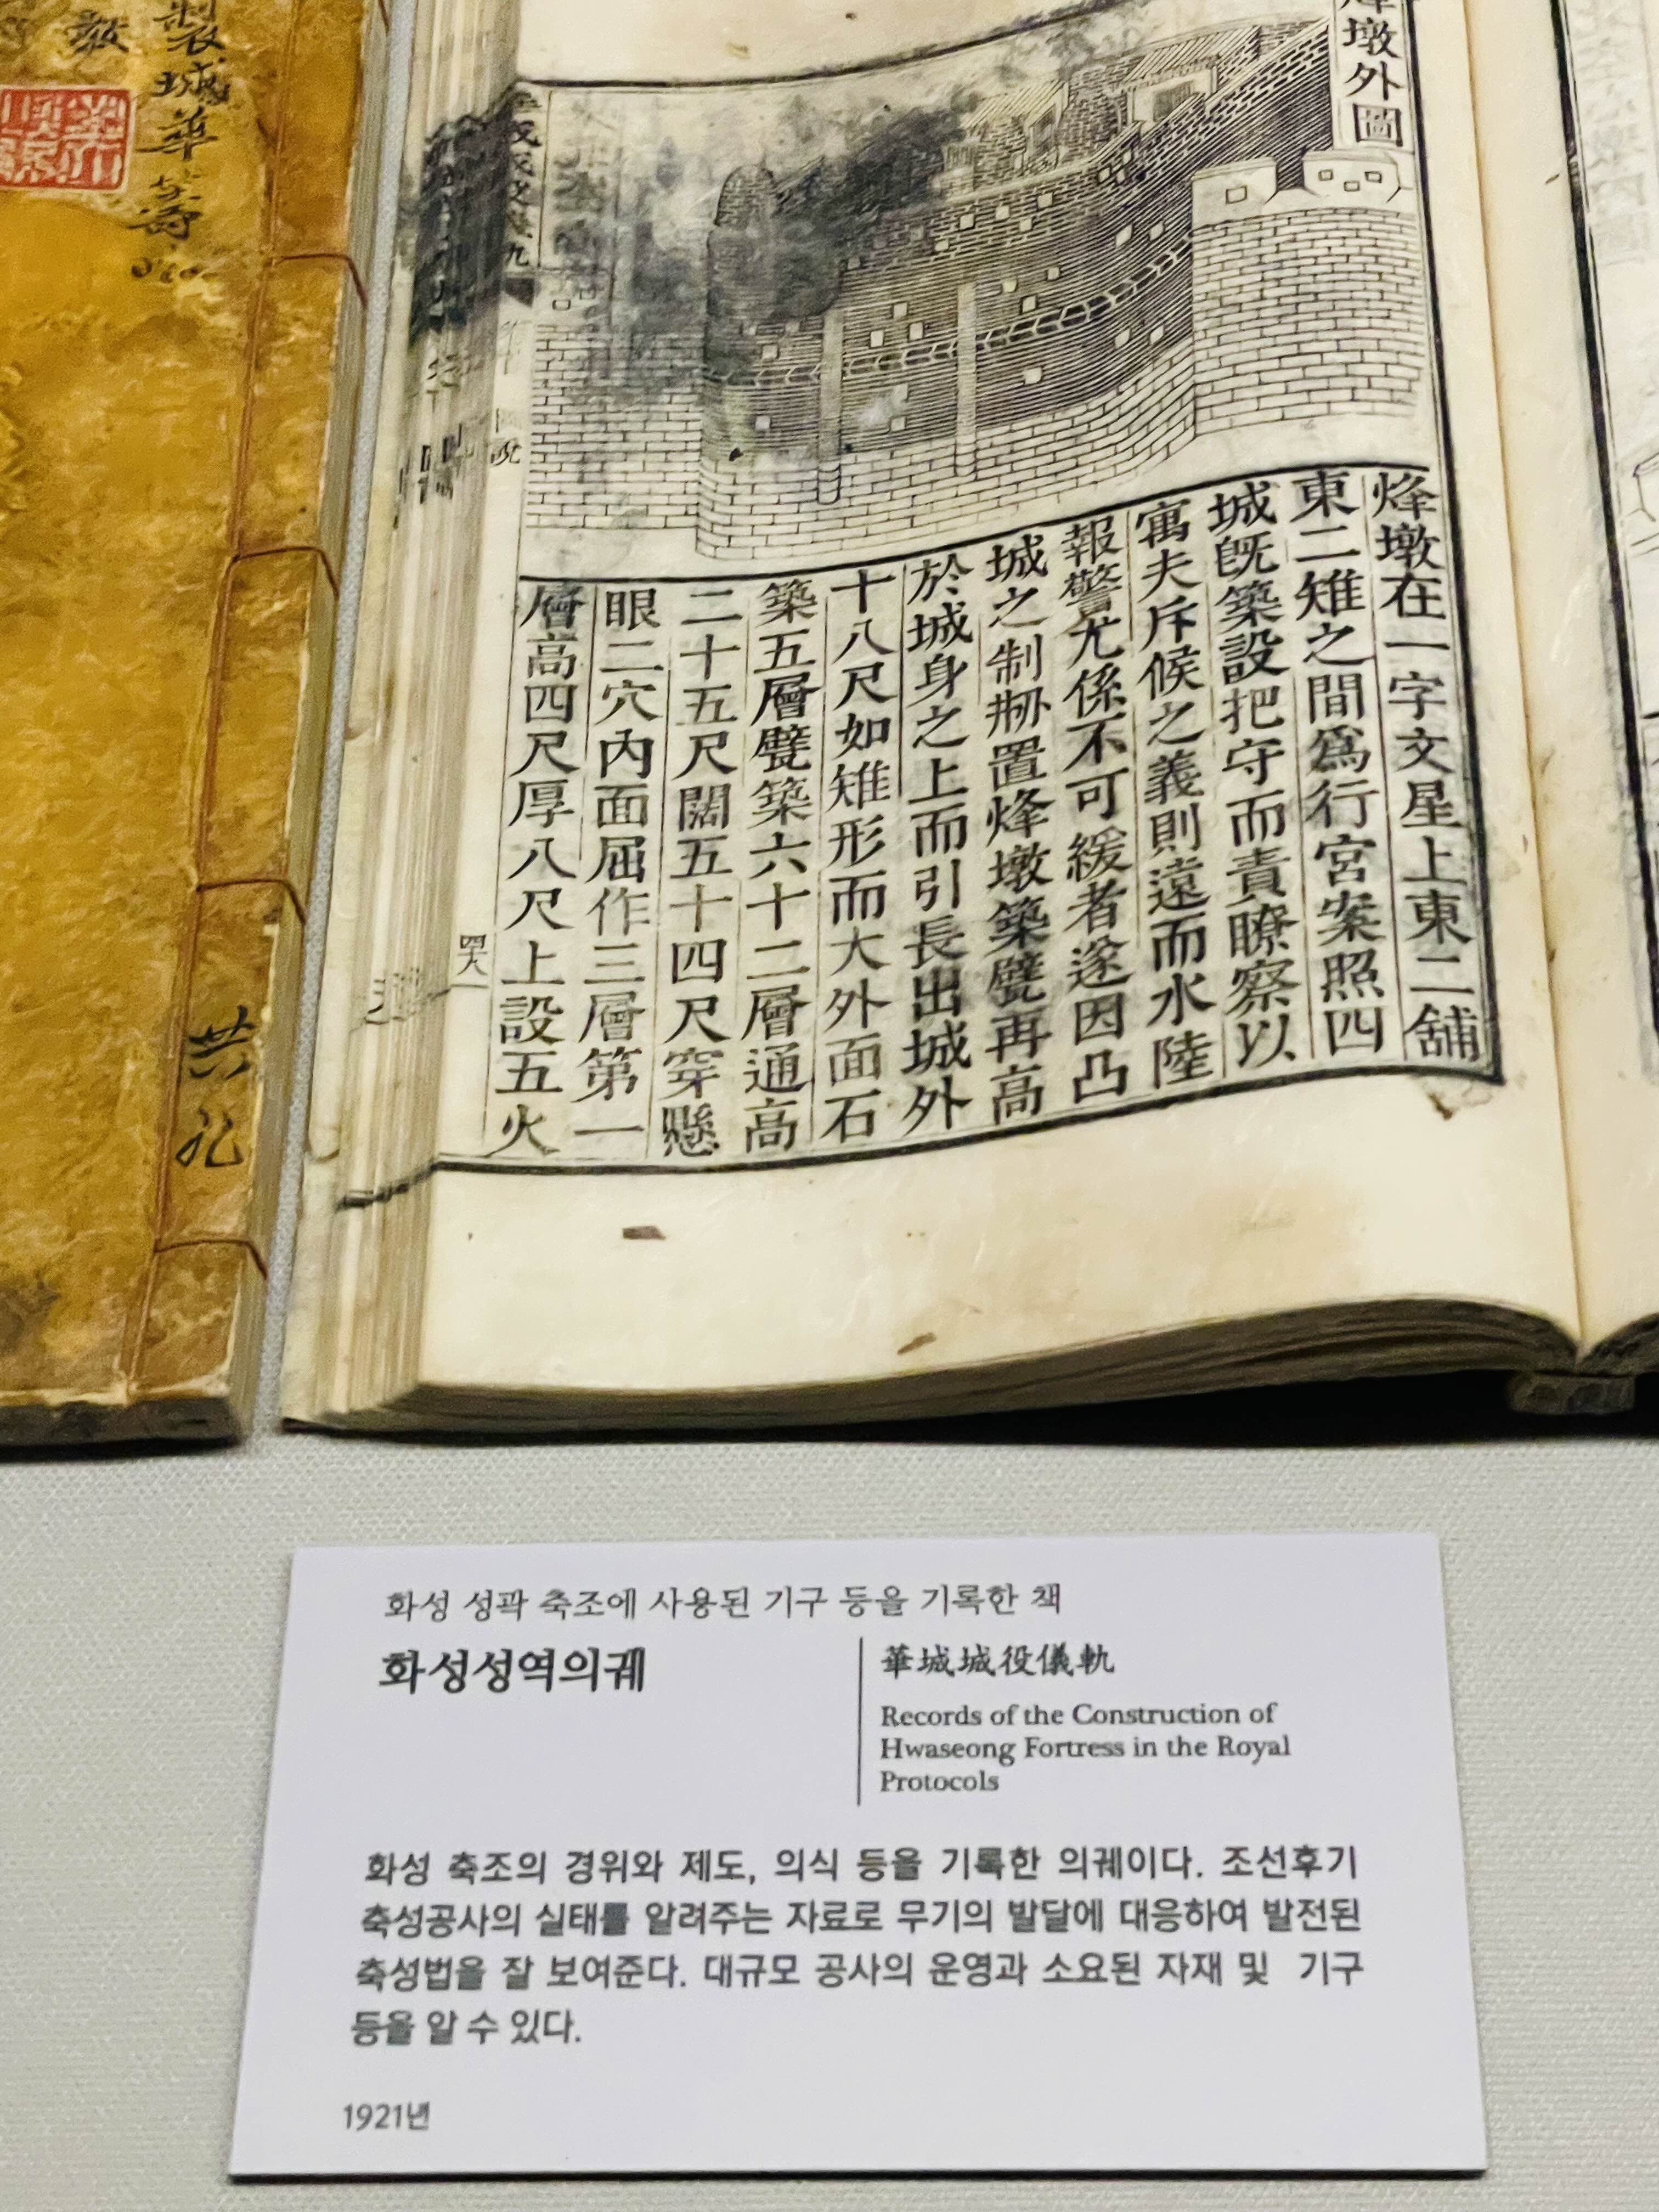 烽墩外圖
烽墩在一字文星上東二舖
東二雉之間爲行宮案照四
城旣築設把守而責瞭察以
寓夫斥候之義則遠而水陸
報警尤係不可緩者遂因凸
城之制刱置烽墩築甓再高
於城身之上而引長出城外
十八尺如雉形而大外面石
築五層甓築六十二層通高
二十五尺闊五十四尺穿懸
眼二穴內面屈作三層第一
層高四尺厚八尺上設五火
製城華
共九
화성 성곽 축조에 사용된 기구 등을 기록한 책
화성성역의궤
華城城役儀軌
Records of the Construction of
Hwaseong Fortress in the Royal
Protocols
화성 축조의 경위와 제도, 의식 등을 기록한 의궤이다. 조선후기
축성공사의 실태를 알려주는 자료로 무기의 발달에 대응하여 발전된
축성법을 잘 보여준다. 대규모 공사의 운영과 소요된 자재 및 기구
등을 알 수 있다.
1921년